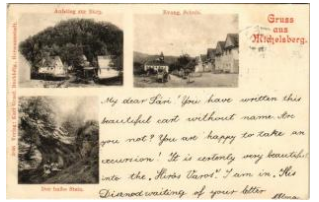 Aufstieg zur Burg.
Evang. Schule.
Gruss
aus
Michelsberg.
Der hohe Stein.
My dear Sári! You have written this
beautiful card without name. Are
you not? You are happy to take an
excursion! It is certenly very beautiful
into the „Vörös Város". I am in
waiting of your letter